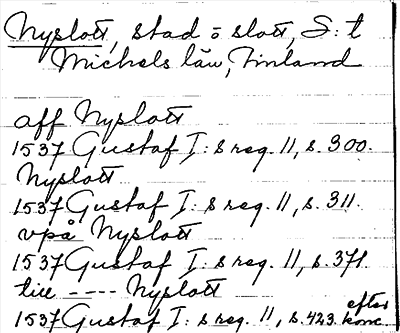 Nyslott, stad o slott, S:t
Michels län, Finland
aff Nyslott
1537 Gustaf I: s reg. 11, s. 300.
Nyslott
1537 Gustaf I: s reg. 11, s. 311.
vpå Nyslott
1537 Gustaf I: s reg. 11, s. 371.
till ---- Nyslott
1537 Gustaf I: s reg. 11, s. 423. efter konc